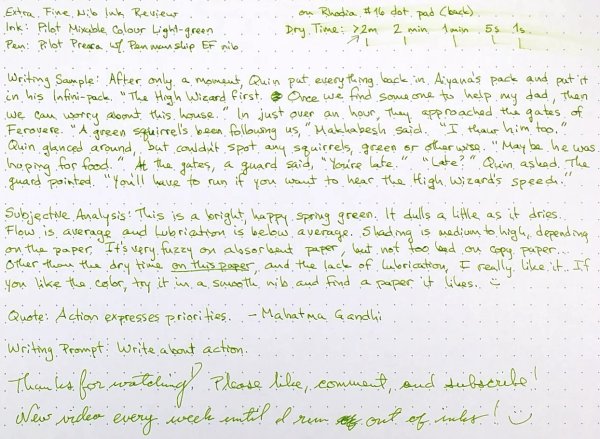 Extra Fine Nib Ink Review on Rhodia #16 dot pad (back)
Ink: Pilot Mixable Colour Light-green Dry Time: >2m 2 min 1 min 5s 1s
Pen: Pilot Prera w/ Penmanship EF nib
Writing Sample: After only a moment, Quin put everything back in Aiyana's pack and put it
in his Infini-pack. "The High Wizard first. Once we find someone to help my dad, then
we can worry about this house." In just over an hour, they approached the gates of
Ferovere. "A green squirrel's been following us," Makhabesh said. "I thaw him too."
Quin glanced around, but couldn't spot any squirrels, green or otherwise. "Maybe he was
hoping for food." At the gates, a guard said, "You're late." "Late?" Quin asked. The
guard pointed. "You'll have to run if you want to hear the High Wizard's speech."
Subjective Analysis: This is a bright, happy spring green. It dulls a little as it dries.
Flow is average and lubrication is below average. Shading is medium to high, depending
on the paper. It's very fuzzy on absorbent paper, but not too bad on copy paper...
Other than the dry time on this paper, and the lack of lubrication, I really like it. If
you like the color, try it in a smooth nib and find a paper it likes. :)
Quote: Action expresses priorities. - Mahatma Gandhi
Writing Prompt: Write about action.
Thanks for watching! Please like, comment, and subscribe!
New video every week until I run out of inks! :)